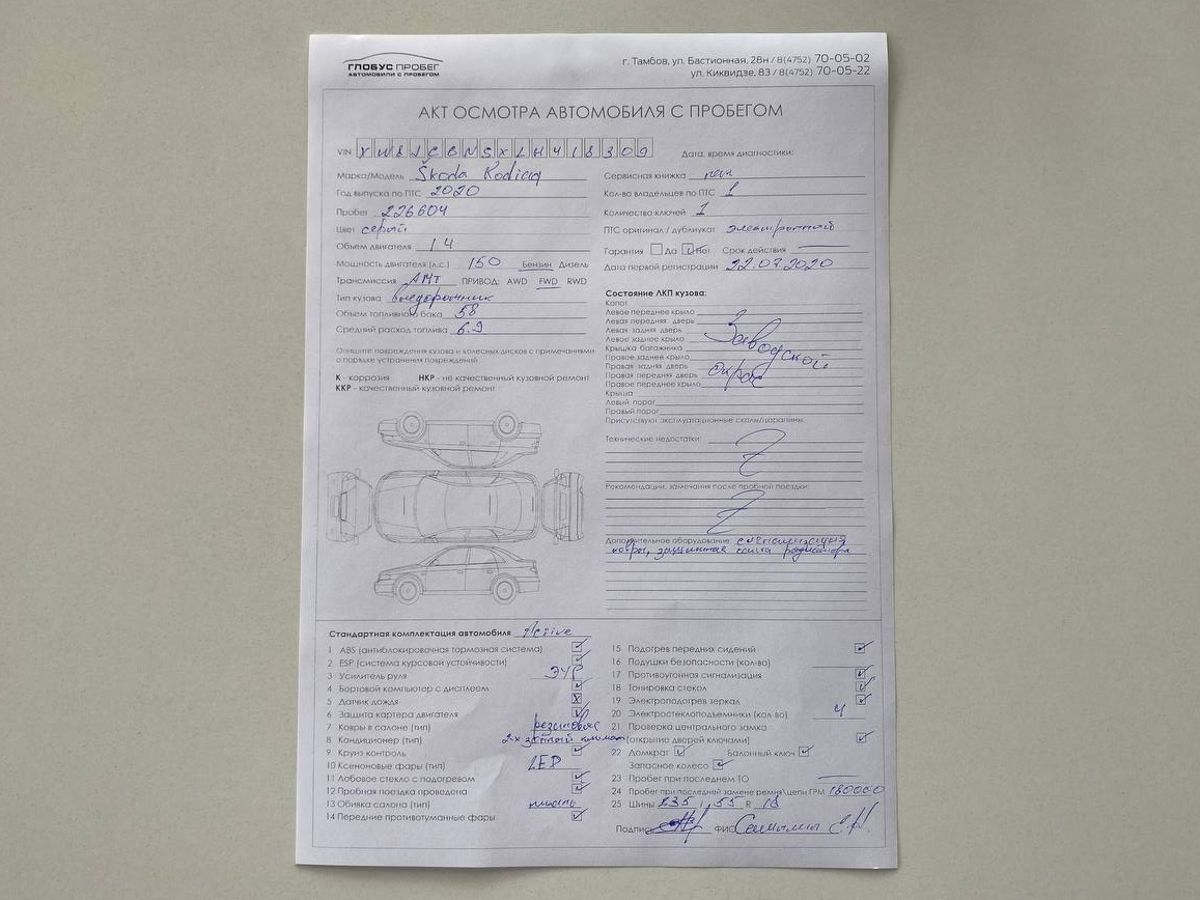 ГЛОБУС ПРОБЕГ
АВТОМОБИЛИ С ПРОБЕГОМ
г. Тамбов, ул. Бастионная, 28н / 8(4752) 70-05-02
ул. Киквидзе, 83 / 8(4752) 70-05-22
АКТ ОСМОТРА АВТОМОБИЛЯ С ПРОБЕГОМ
VIN
Дата, время диагностики:
Марка/Модель Škoda Kodiaq
Год выпуска по ПТС 2020
Пробег 226604
Цвет серый
Объем двигателя 1 4
Мощность двигателя (л.с.) 150 Бензин Дизель
Трансмиссия АМТ ПРИВОД: AWD FWD RWD
Тип кузова внедорожник
Объем топливного бака 58
Средний расход топлива 6.9
Опишите повреждения кузова и колесных дисков с примечаниями
о порядке устранения повреждений
К - коррозия НКР - не качественный кузовной ремонт
ККР - качественный кузовной ремонт
Сервисная книжка
Кол-во владельцев по ПТС 1
Количество ключей 1
ПТС оригинал / дубликат электронный
Гарантия Да Нет Срок действия
Дата первой регистрации 22.07.2020
Состояние ЛКП кузова:
Капот
Левое переднее крыло
Левая передняя дверь
Левая задняя дверь
Левое заднее крыло
Крышка багажника
Правое заднее крыло
Правая задняя дверь
Правая передняя дверь
Правое переднее крыло
Заводской
окрас
Крыша
Левый порог
Правый порог
Присутствуют эксплуатационные сколы/царапины
Технические недостатки:
Рекомендации, замечания после пробной поездки:
Дополнительное оборудование сигнализация
ковры, защитная сетка радиатора
Стандартная комплектация автомобиля Active
1 ABS (антиблокировочная тормозная система)
2 ESP (система курсовой устойчивости)
3 Усилитель руля ЭУР
4 Бортовой компьютер с дисплеем
5 Датчик дождя
6 Защита картера двигателя
7 Ковры в салоне (тип) резиновые
8 Кондиционер (тип) 2-х зонный климат
9 Круиз контроль
10 Ксеноновые фары (тип) LED
11 Лобовое стекло с подогревом
12 Пробная поездка проведена
13 Обивка салона (тип) ткань
14 Передние противотуманные фары
15 Подогрев передних сидений
16 Подушки безопасности (кол-во)
17 Противоугонная сигнализация
18 Тонировка стекол
19 Электроподогрев зеркал
20 Электростеклоподъемники (кол-во) 4
21 Проверка центрального замка
(открытие дверей ключами)
22 Домкрат Балонный ключ
Запасное колесо
23 Пробег при последнем ТО
24 Пробег при последней замене ремня\цепи ГРМ 180000
25 Шины 235 / 55 R 18
Подпись ФИО